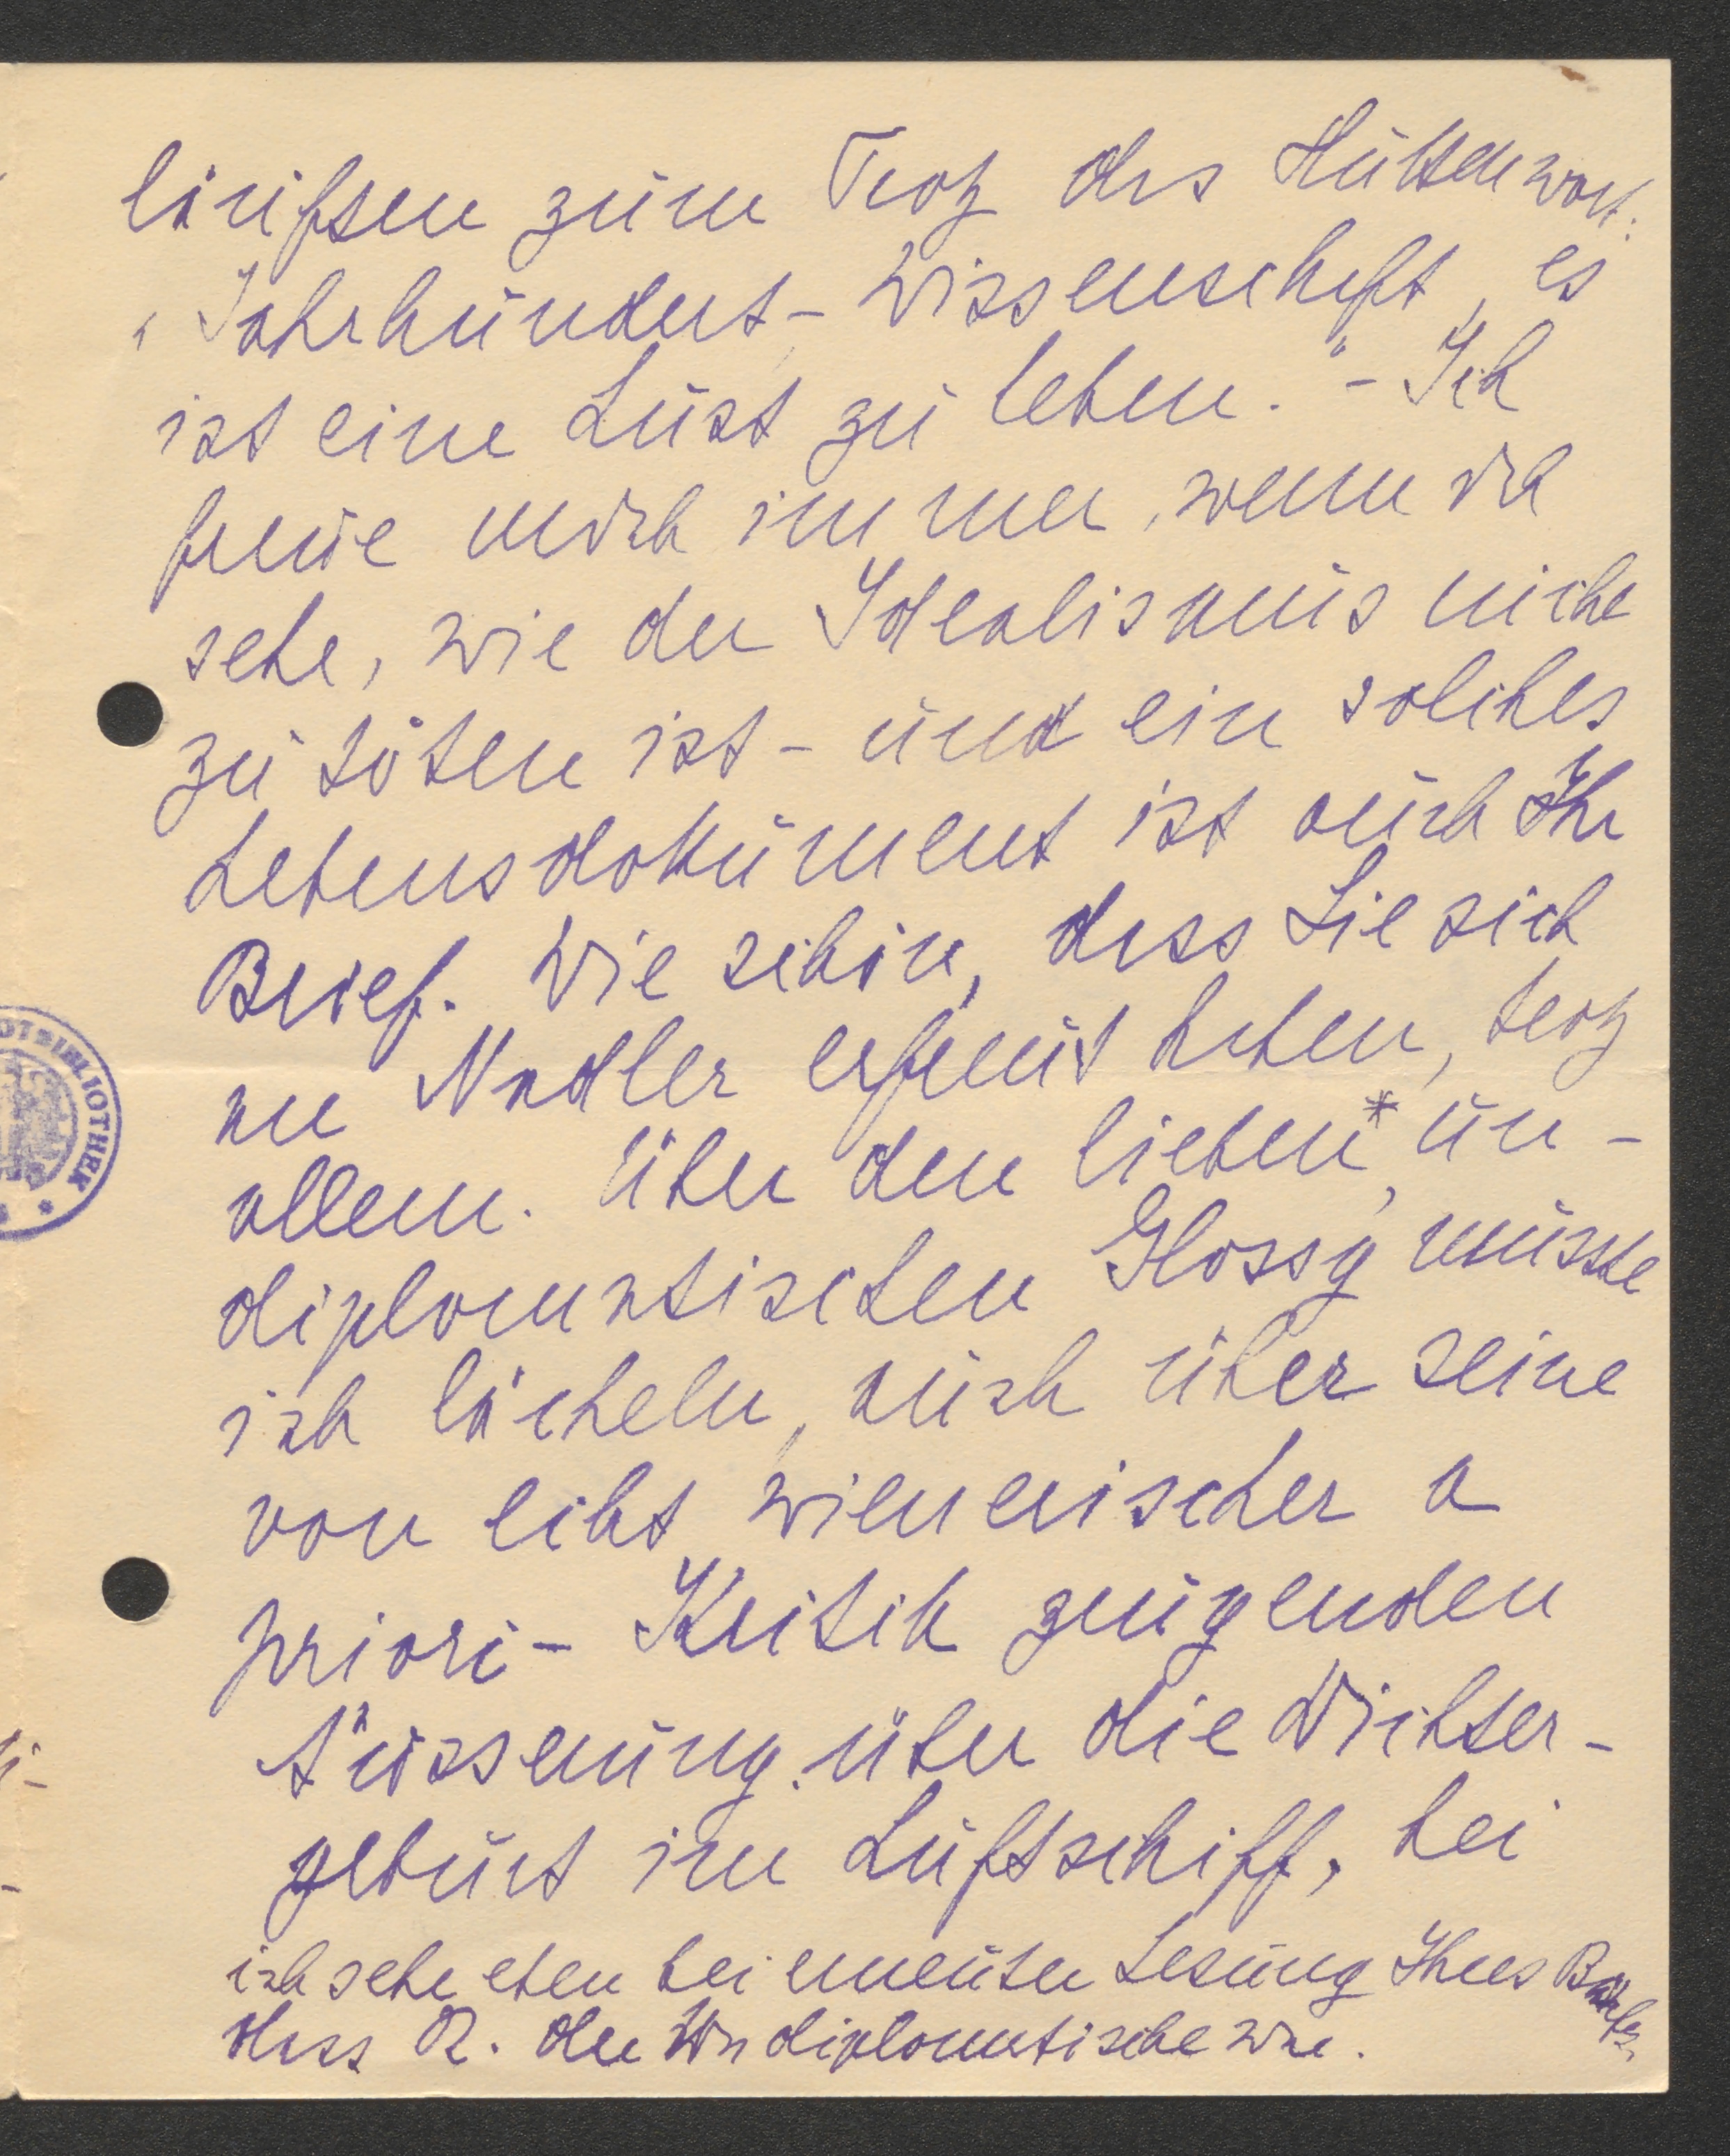 läuften zum Troz des Huttenwort:
„Jahrhundert-Wissenschaft, es
ist eine Lust zu leben." - Ich
freue mich immer, wenn ich
sehe, wie der Idealismus nicht
zu töten ist - und ein solches
Lebensdokument ist auch Ihr
Brief. Wie schön, dass Sie sich
an Nadler erfreut haben, troz
allem. Über den lieben*, un-
diplomatischen Glossy musste
ich lächeln, auch über seine
von echt wienerischer a
priori-Kritik zeugenden
Äusserung über die Dichter-
geburt im Luftschiff, bei
ich sehe eben bei erneuter Lesung Ihres Briefes,
dass R. der Undiplomatische war.
OTBIBLIOTHEK